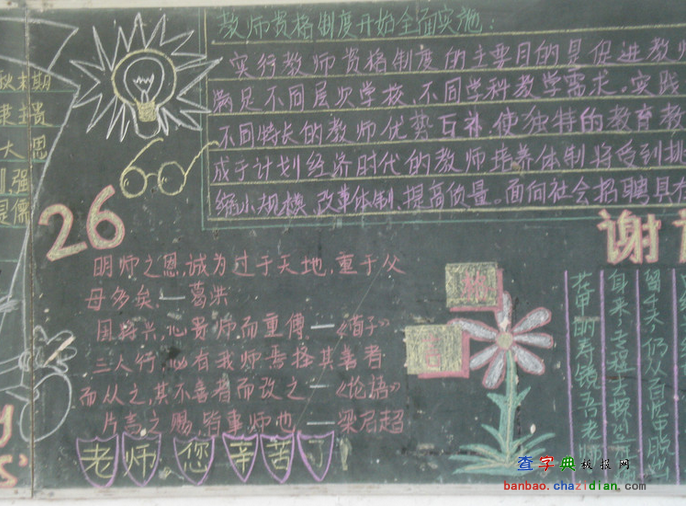 教师资格制度开始全面实施：
实行教师资格制度的主要目的是促进教师
满足不同层次学校、不同学科教学需求。实践
不同特长的教师优势互补，使独特的教育教
成于计划经济时代的教师培养体制将受到挑
缩小规模、改革体制、提高质量。面向社会招聘具有
秋末期
大恩
强
26
明师之恩，诚为过于天地，重于父
母多矣——葛洪
国将兴，心贵师而重傅——《荀子》
三人行，必有我师焉择其善者
而从之，其不善者而改之——《伦语》
片言之赐，皆事师也——梁启超
老师、您辛苦了！
谢
留千天，仍从百忆中
自来，专程去探
师寿镜吾老
查字典板报网
banbao.chazidian.com